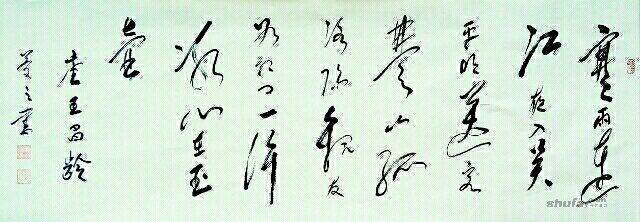 寒雨連
江夜入吳
平明送客
楚山孤
洛陽親友
如相問一片
冰心在玉
壺
唐王昌齡